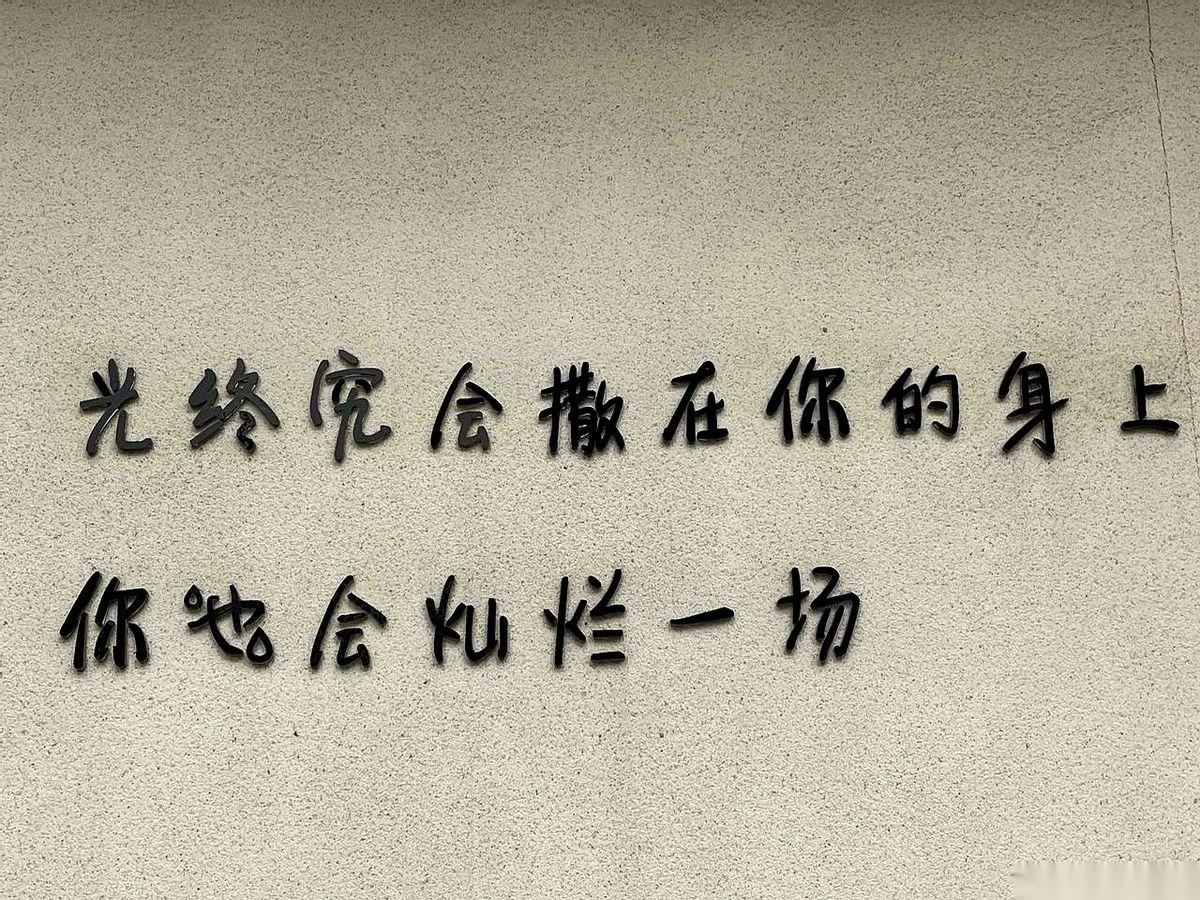 光终究会撒在你的身上
你也会灿烂一场